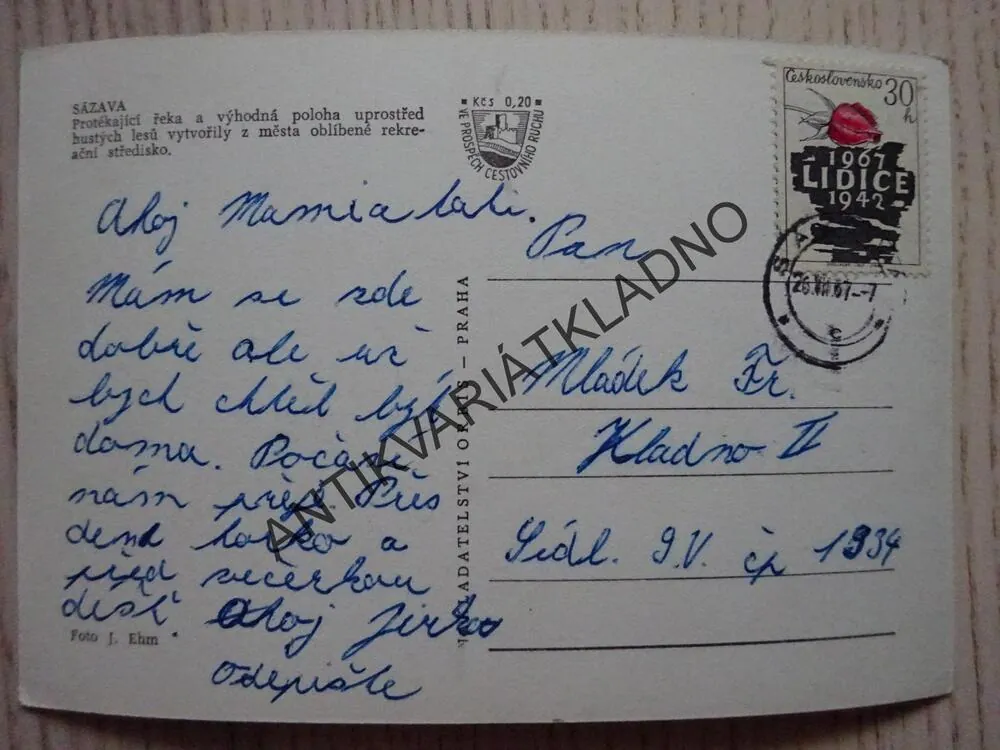 SÁZAVA
Protékající řeka a výhodná poloha uprostřed
hustých lesů vytvořily z města oblíbené rekre-
ační středisko.
Kčs 0,20
VE PROSPĚCH CESTOVNÍHO RUCHU
Československo 30 h
1967
LIDICE
1942
26.VII.67-7
Ahoj Mamia tati.
Mám se zde
dobře ale už
bych chtěl být
doma. Počasí
nám přeje. Přes
den horko a
před večerkou
déšť Ahoj Jirka
Odepište
Foto J. Ehm
NAKLADATELSTVÍ ORBIS – PRAHA
Pan
Mládek Fr.
Kladno II
Sídl. 9.V. čp 1934
ANTIKVARIÁTKLADNO